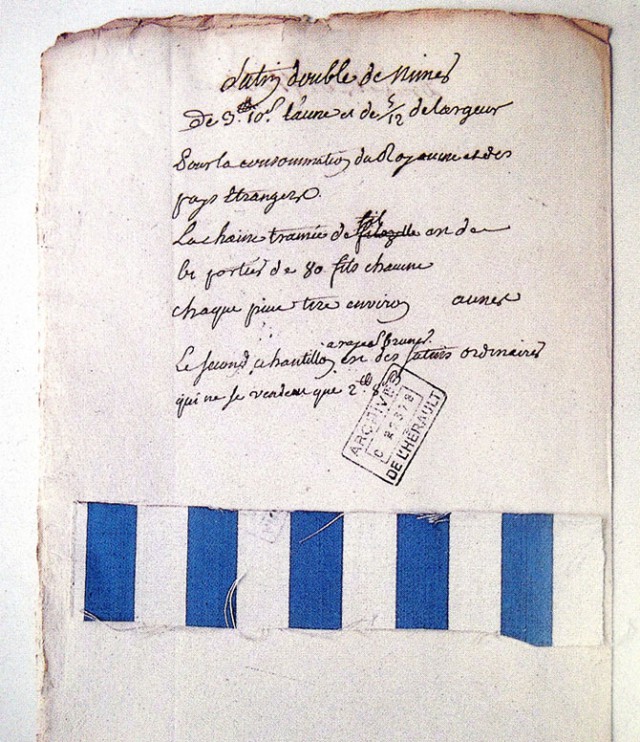 Satin double de Nimes
De 3.# 10.s l'aune et de 5/12 de largeur
Pour la consommation du Royaume et des
pays étrangers.
La chaine tramée de fil est de
portées de 80 fils chacune
chaque piece tire environ aunes
a rayes brunes.
Le second echantillon est des satins ordinaires
qui ne se vendent que 2.#
ARCHIVES
C
DE L'HÉRAULT